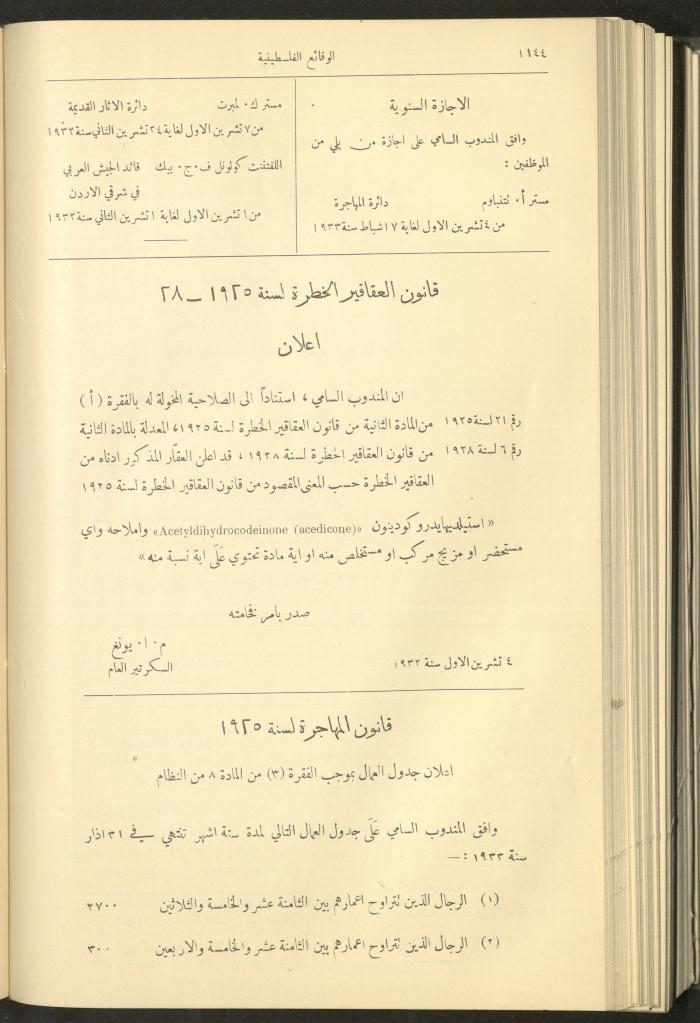 ١١٤٤
الوقائع الفلسطينية
الاجازة السنوية
وافق المندوب السامي على اجازة من يلي من
الموظفين :
مستر أ٠ لتنباوم دائرة المهاجرة
من ٤ تشرين الاول لغاية ١٧ شباط سنة ١٩٣٣
مستر ك٠ لمبرت دائرة الاثار القديمة
من ٧ تشرين الاول لغاية ٢٤ تشرين الثاني سنة ١٩٣٢
اللفتننت كولونل ف٠ج٠ بيك قائد الجيش العربي
في شرقي الاردن
من ١ تشرين الاول لغاية ١ تشرين الثاني سنة ١٩٣٢
قانون العقاقير الخطرة لسنة ١٩٢٥ – ٢٨
اعلان
ان المندوب السامي ، استناداً الى الصلاحية المخولة له بالفقرة ( أ )
رقم ٢١ لسنة ١٩٢٥ من المادة الثانية من قانون العقاقير الخطرة لسنة ١٩٢٥، المعدلة بالمادة الثانية
رقم ٦ لسنة ١٩٢٨ من قانون العقاقير الخطرة لسنة ١٩٢٨ ، قد اعلن العقّار المذكور ادناه من
العقاقير الخطرة حسب المعنى المقصود من قانون العقاقير الخطرة لسنة ١٩٢٥
« استيلديهايدروكودينون «Acetyldihydrocodeinone (acedicone)» واملاحه واي
مستحضر او مزيج مركب او مستخلص منه او اية مادة تحتوي عَلَى اية نسبة منه»
صدر بامر فخامته
م٠ ا٠ يونغ
٤ تشرين الاول سنة ١٩٣٢ السكرتير العام
قانون المهاجرة لسنة ١٩٢٥
اعلان جدول العمال بموجب الفقرة (٣) من المادة ٨ من النظام
وافق المندوب السامي عَلَى جدول العمال التالي لمدة ستة اشهر تنتهي في ٣١ اذار
سنة ١٩٣٣ : —
(١) الرجال الذين تتراوح اعمارهم بين الثامنة عشر والخامسة والثلاثين ٢٧٠٠
(٢) الرجال الذين تتراوح اعمارهم بين الثامنة عشر والخامسة والاربعين ٣٠٠